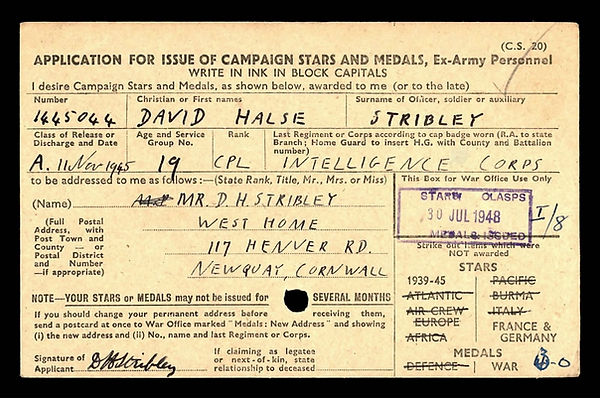 (C.S. 20)
APPLICATION FOR ISSUE OF CAMPAIGN STARS AND MEDALS, Ex-Army Personnel
WRITE IN INK IN BLOCK CAPITALS
I desire Campaign Stars and Medals, as shown below, awarded to me (or to the late)
Number Christian or First names Surname of Officer, soldier or auxiliary
1445044 DAVID HALSE STRIBLEY
Class of Release or Discharge and Date Age and Service Group No. Rank Last Regiment or Corps according to cap badge worn (R.A. to state Branch; Home Guard to insert H.G. with County and Battalion number)
A. 11 Nov 1945 19 CPL INTELLIGENCE CORPS
to be addressed to me as follows:—(State Rank, Title, Mr., Mrs. or Miss)
(Name) MR. D. H. STRIBLEY
(Full Postal Address, with Post Town and County — or Postal District and Number —if appropriate)
WEST HOME
117 HENVER RD.
NEWQUAY, CORNWALL
This Box for War Office Use Only
STARS CLASPS
30 JUL 1948
MEDALS ISSUED
I/8
Strike out items which were NOT awarded
STARS
1939-45 PACIFIC
ATLANTIC BURMA
AIR CREW EUROPE ITALY
AFRICA FRANCE & GERMANY
MEDALS
DEFENCE WAR
NOTE—YOUR STARS or MEDALS may not be issued for SEVERAL MONTHS
If you should change your permanent address before receiving them,
send a postcard at once to War Office marked "Medals: New Address" and showing
(i) the new address and (ii) No., name and last Regiment or Corps.
Signature of Applicant D H Stribley
If claiming as legatee or next-of-kin, state relationship to deceased